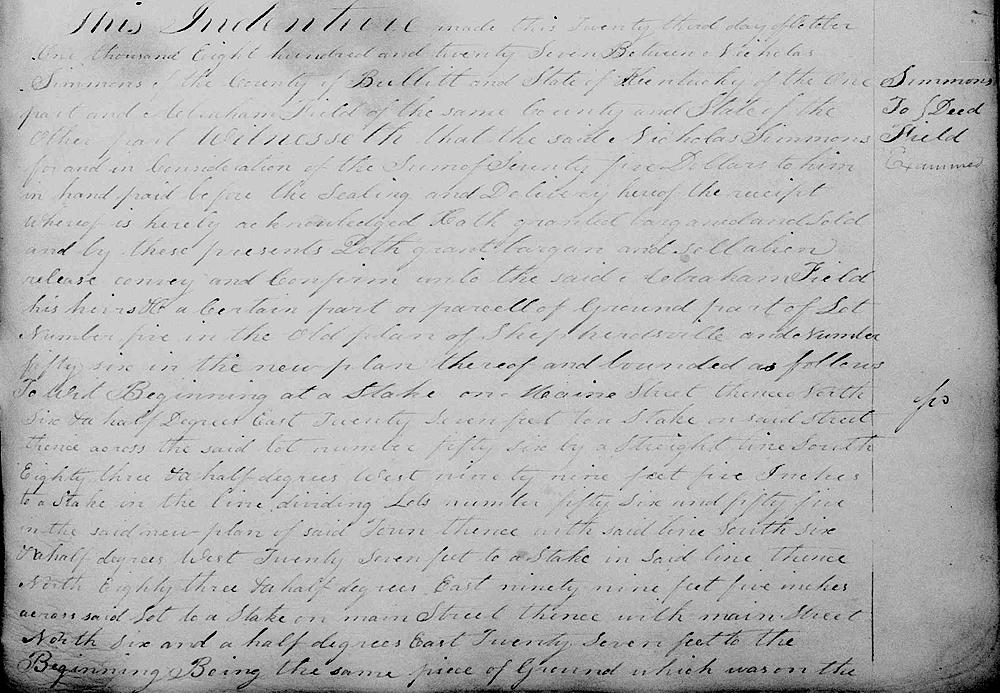 This Indenture made this Twenty third day of October
One thousand Eight hundred and twenty Seven Between Nicholas
Simmons of the County of Bullitt and State of Kentucky of the One
part and Abraham Field of the same County and State of the
Other part Witnesseth that the said Nicholas Simmons
for and in Consideration of the Sum of Seventy five Dollars to him
in hand paid before the Sealing and Delivery hereof the receipt
whereof is hereby acknowledged Hath granted barganed and Sold
and by these presents Doth grant bargan and sell alien
release convey and Confirm unto the said Abraham Field
his heirs &c a Certain part or parcell of Ground part of Lot
Number five in the Old plan of Shepherdsville and Number
fifty six in the new plan thereof and bounded as follows
To Wit Beginning at a Stake on Maine Street thence North
Six & a half Degrees East Twenty Seven feet to a Stake on said Street
thence across the said lot number fifty six by a Straight line South
Eighty three & a half degrees West ninety nine feet five Inches
to a Stake in the line dividing Lots number fifty Six and fifty five
in the said new plan of said Town thence with said line South six
& a half degrees West Twenty Seven feet to a Stake in said line thence
North Eighty three & a half degrees East ninety nine feet five inches
across said Lot to a Stake on main Street thence with main Street
North Six and a half degrees East Twenty Seven feet to the
Beginning Being the same piece of Ground which was on the
Simmons
To } Deed
Field
Examined